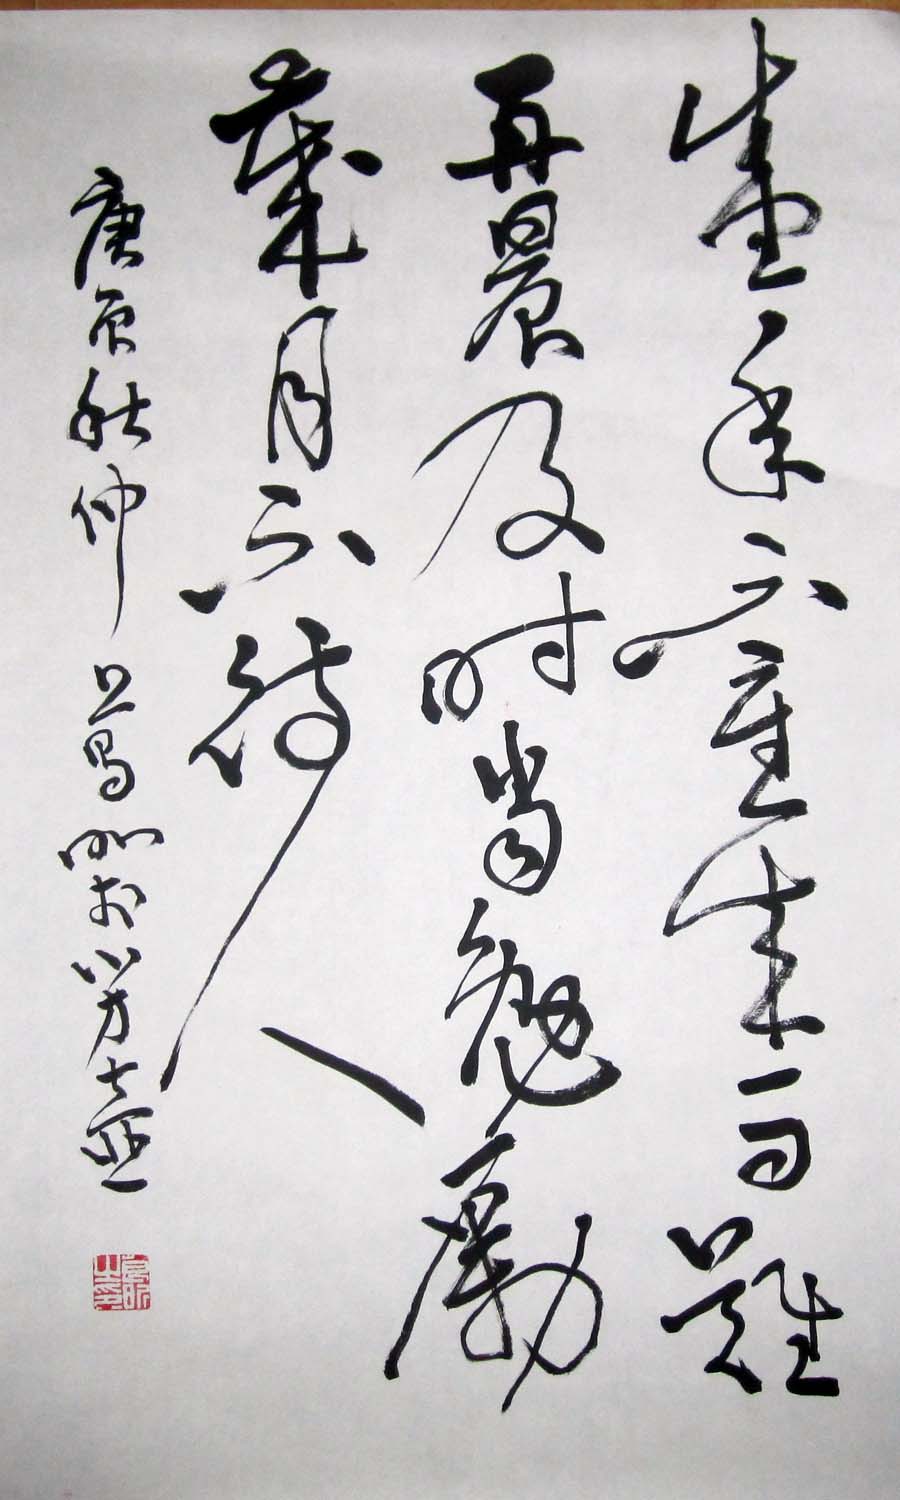 盛年不重来一日难
再晨及时当勉励
岁月不待人
庚寅秋仲